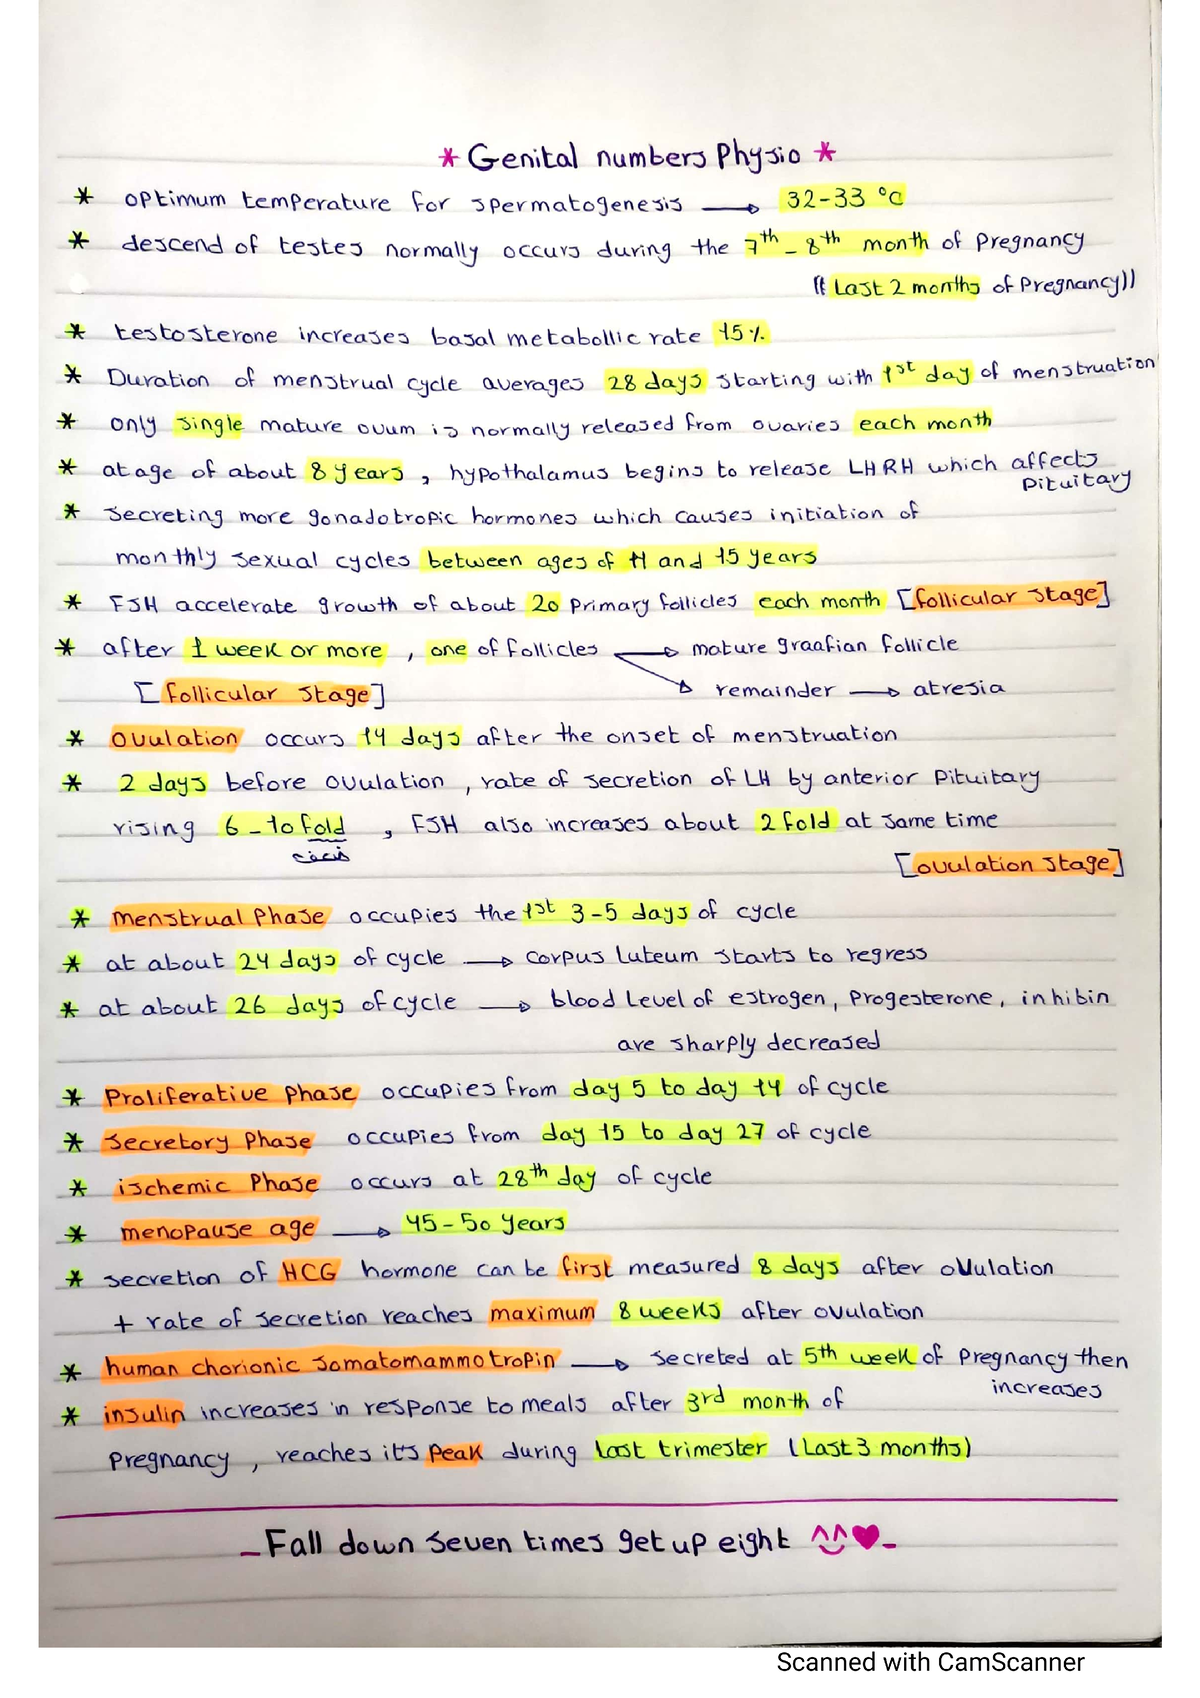 * Genital numbers Physio *
* optimum temperature for spermatogenesis → 32-33 °C
* descend of testes normally occurs during the 7th - 8th month of pregnancy
(( Last 2 months of pregnancy))
* testosterone increases basal metabollic rate 15%
* Duration of menstrual cycle averages 28 days starting with 1st day of menstruation
* only single mature ovum is normally released from ovaries each month
* at age of about 8 years , hypothalamus begins to release LHRH which affects
pituitary
* secreting more gonadotropic hormones which causes initiation of
monthly sexual cycles between ages of 11 and 15 years
* FSH accelerate growth of about 20 primary follicles each month [follicular stage]
* after 1 week or more , one of follicles → mature graafian follicle
[follicular stage] → remainder → atresia
* Ovulation occurs 14 days after the onset of menstruation
* 2 days before ovulation , rate of secretion of LH by anterior pituitary
rising 6 - 10 fold , FSH also increases about 2 fold at same time
[ovulation stage]
* menstrual phase occupies the 1st 3-5 days of cycle
* at about 24 days of cycle → corpus luteum starts to regress
* at about 26 days of cycle → blood level of estrogen, progesterone, inhibin
are sharply decreased
* Proliferative phase occupies from day 5 to day 14 of cycle
* secretory phase occupies from day 15 to day 27 of cycle
* ischemic phase occurs at 28th day of cycle
* menopause age → 45-50 years
* secretion of HCG hormone can be first measured 8 days after ovulation
+ rate of secretion reaches maximum 8 weeks after ovulation
* human chorionic somatomammotropin → secreted at 5th week of pregnancy then
increases
* insulin increases in response to meals after 3rd month of
pregnancy , reaches it's peak during last trimester (Last 3 months)
- Fall down seven times get up eight ^^ ♥ -
Scanned with CamScanner